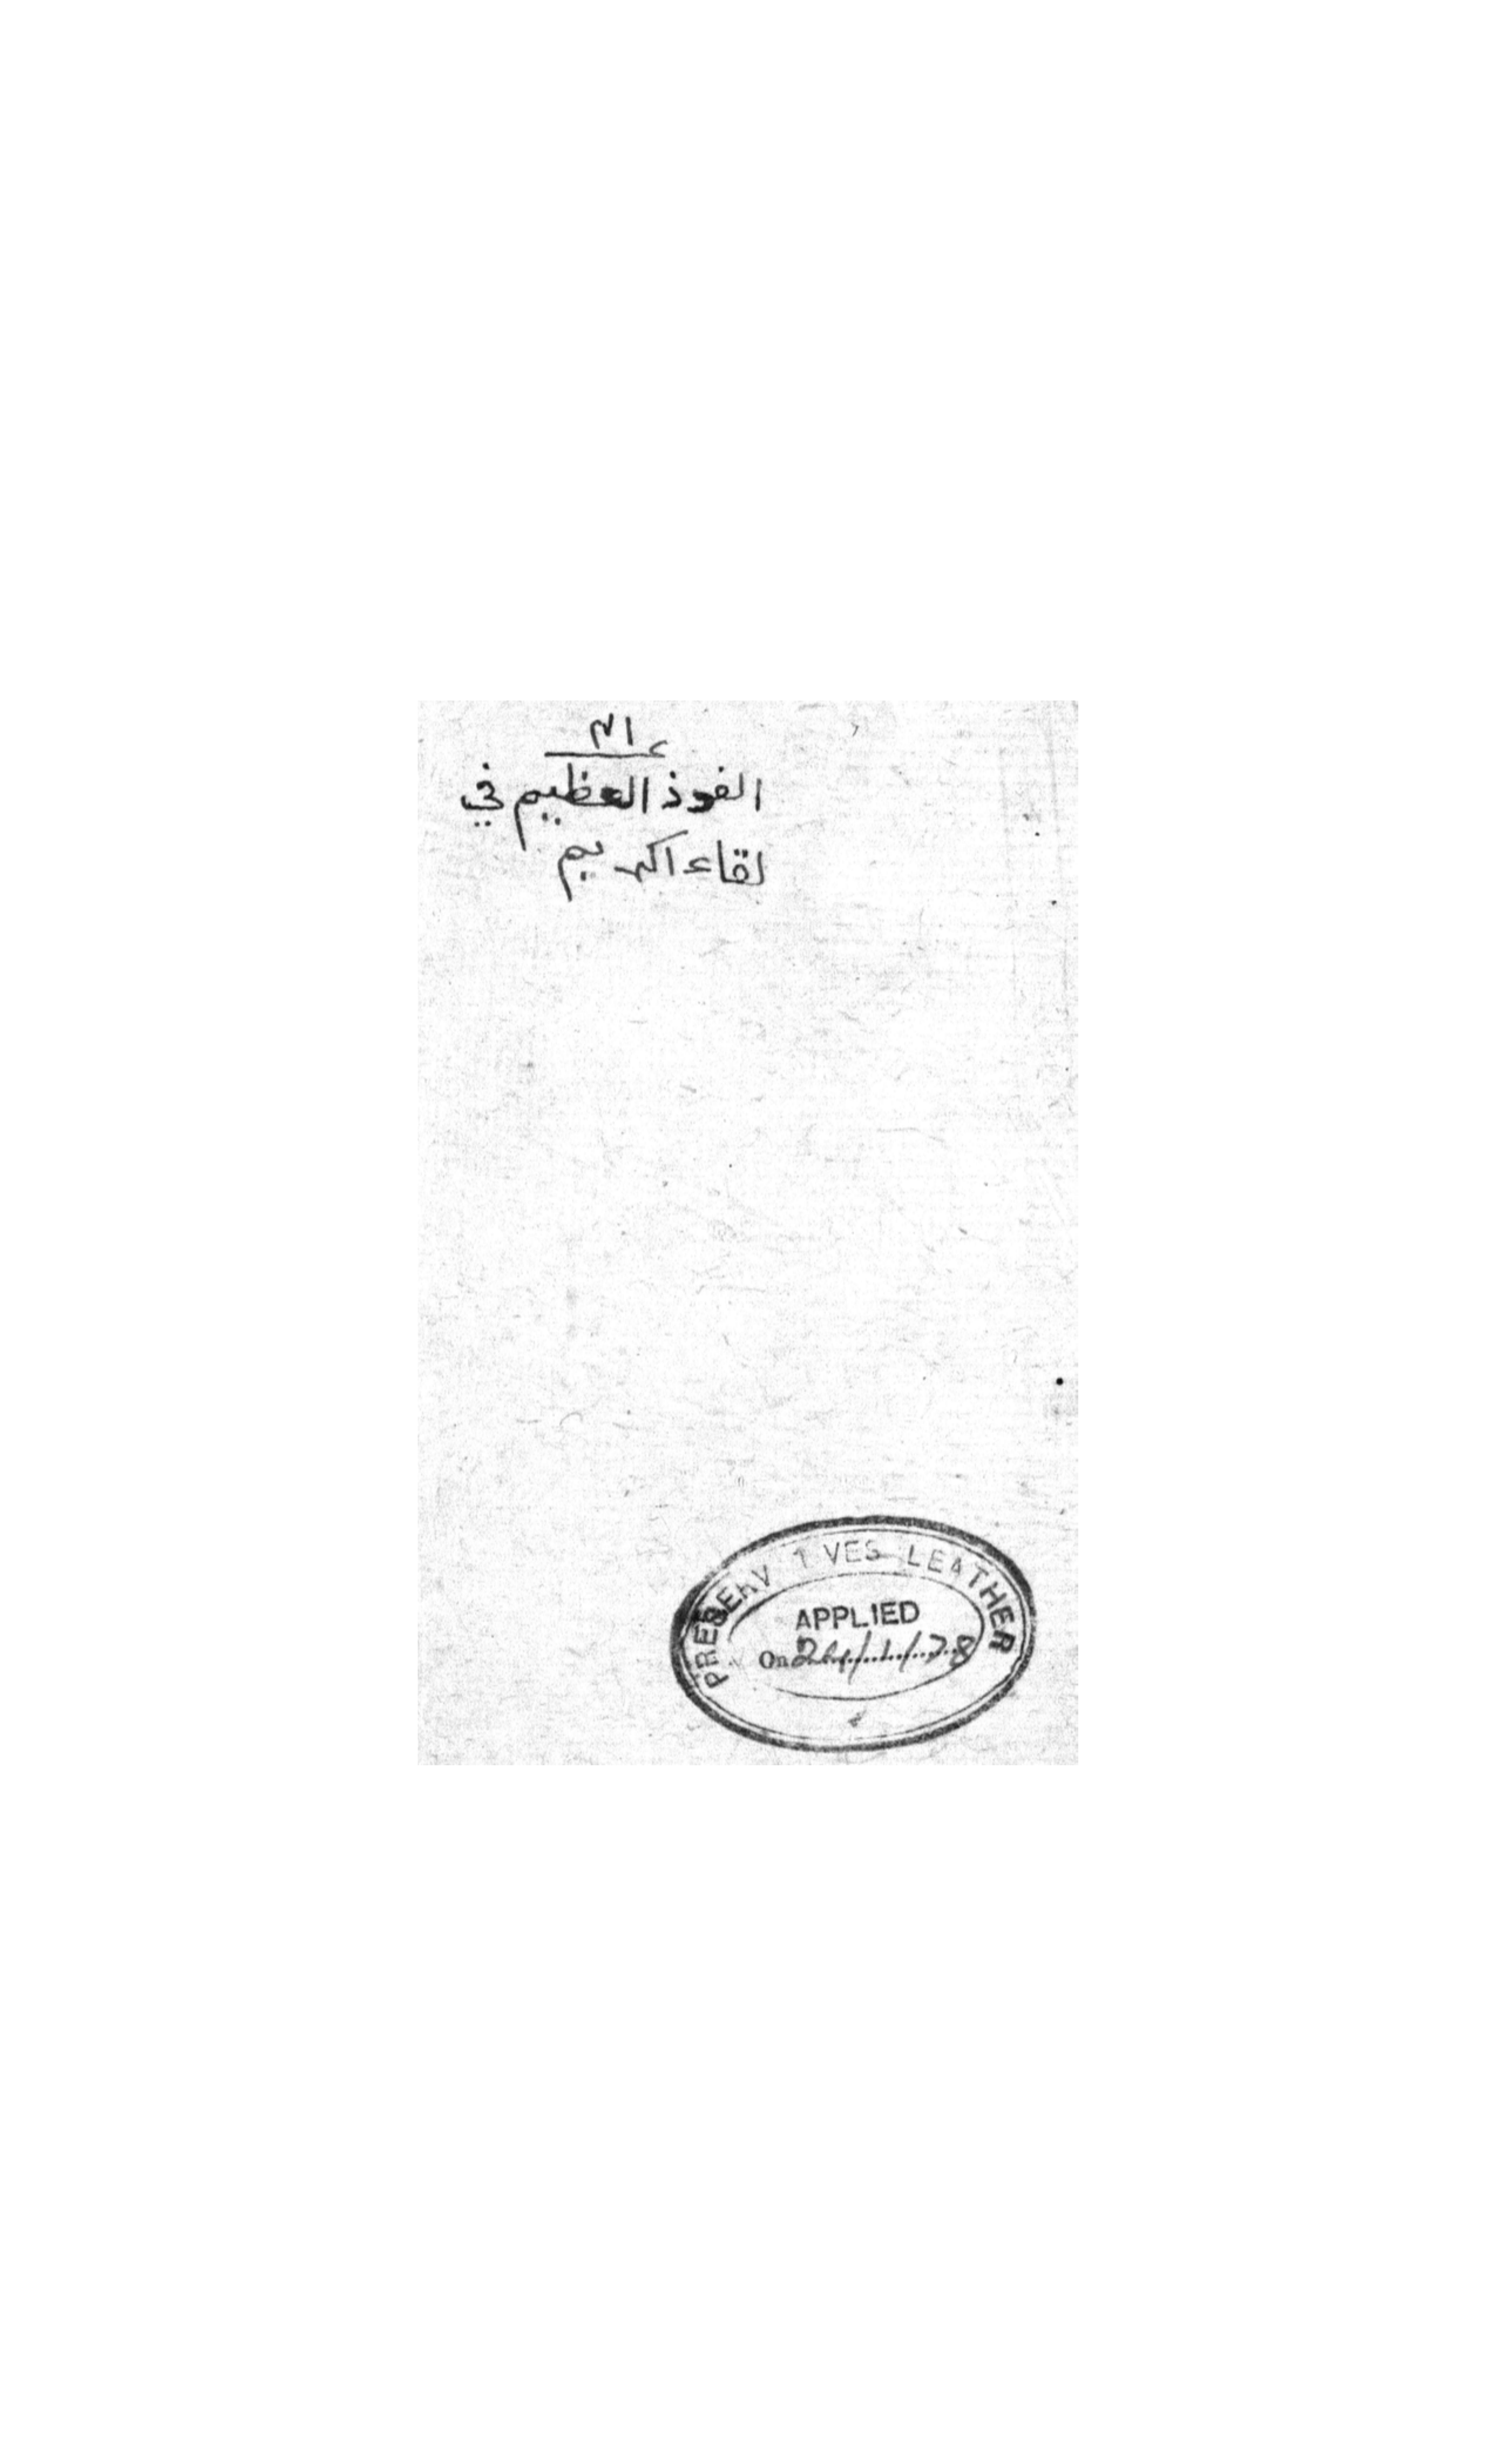 الفوذ العظيم في
لقاء الكريم
PRESERVATIVES LEATHER
APPLIED
On